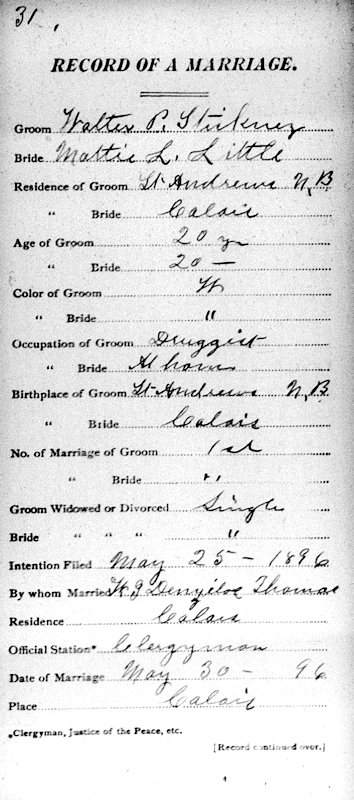 31
RECORD OF A MARRIAGE.
Groom Walter P. Stickney
Bride Mattie L. Little
Residence of Groom St Andrews N.B
" Bride Calais
Age of Groom 20 yr
" Bride 20 —
Color of Groom W
" Bride "
Occupation of Groom Druggist
" Bride At home
Birthplace of Groom St Andrews N.B
" Bride Calais
No. of Marriage of Groom 1st
" Bride "
Groom Widowed or Divorced Single
Bride " " " "
Intention Filed May 25 - 1896
By whom Married Thomas
Residence Calais
Official Station* Clergyman
Date of Marriage May 30 - 96
Place Calais
*Clergyman, Justice of the Peace, etc.
[Record continued over.]